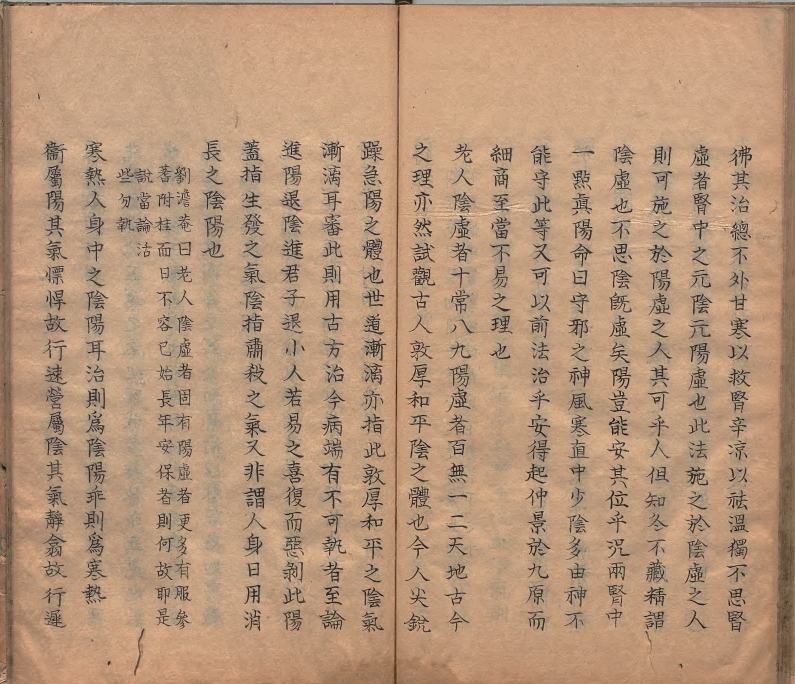 彿其治總不外甘寒以救腎辛涼以祛溫獨不思腎
虛者腎中之元陰元陽虛也此法施之於陰虛之人
則可施之於陽虛之人其可乎人但知冬不藏精謂
陰虛也不思陰旣虛矣陽豈能安其位乎况兩腎中
一點眞陽命曰守邪之神風寒直中少陰多由神不
能守此等又可以前法治乎安得起仲景於九原而
細商至當不易之理也
老人陰虛者十常八九陽虛者百無一二天地古今
之理亦然試觀古人敦厚和平陰之體也今人尖銳
躁急陽之體也世道漸漓亦指此敦厚和平之陰氣
漸漓耳審此則用古方治今病端有不可執者至論
進陽退陰進君子退小人若易之喜復而惡剝此陽
蓋指生發之氣陰指肅殺之氣又非謂人身日用消
長之陰陽也
劉澹菴曰老人陰虛者固有陽虛者更多有服參
蓍附桂而日不容已始長年安保者則何故耶是
說當論活
些勿執
寒熱人身中之陰陽耳治則爲陰陽乖則爲寒熱
衞屬陽其氣慓悍故行速營屬陰其氣靜翕故行遲